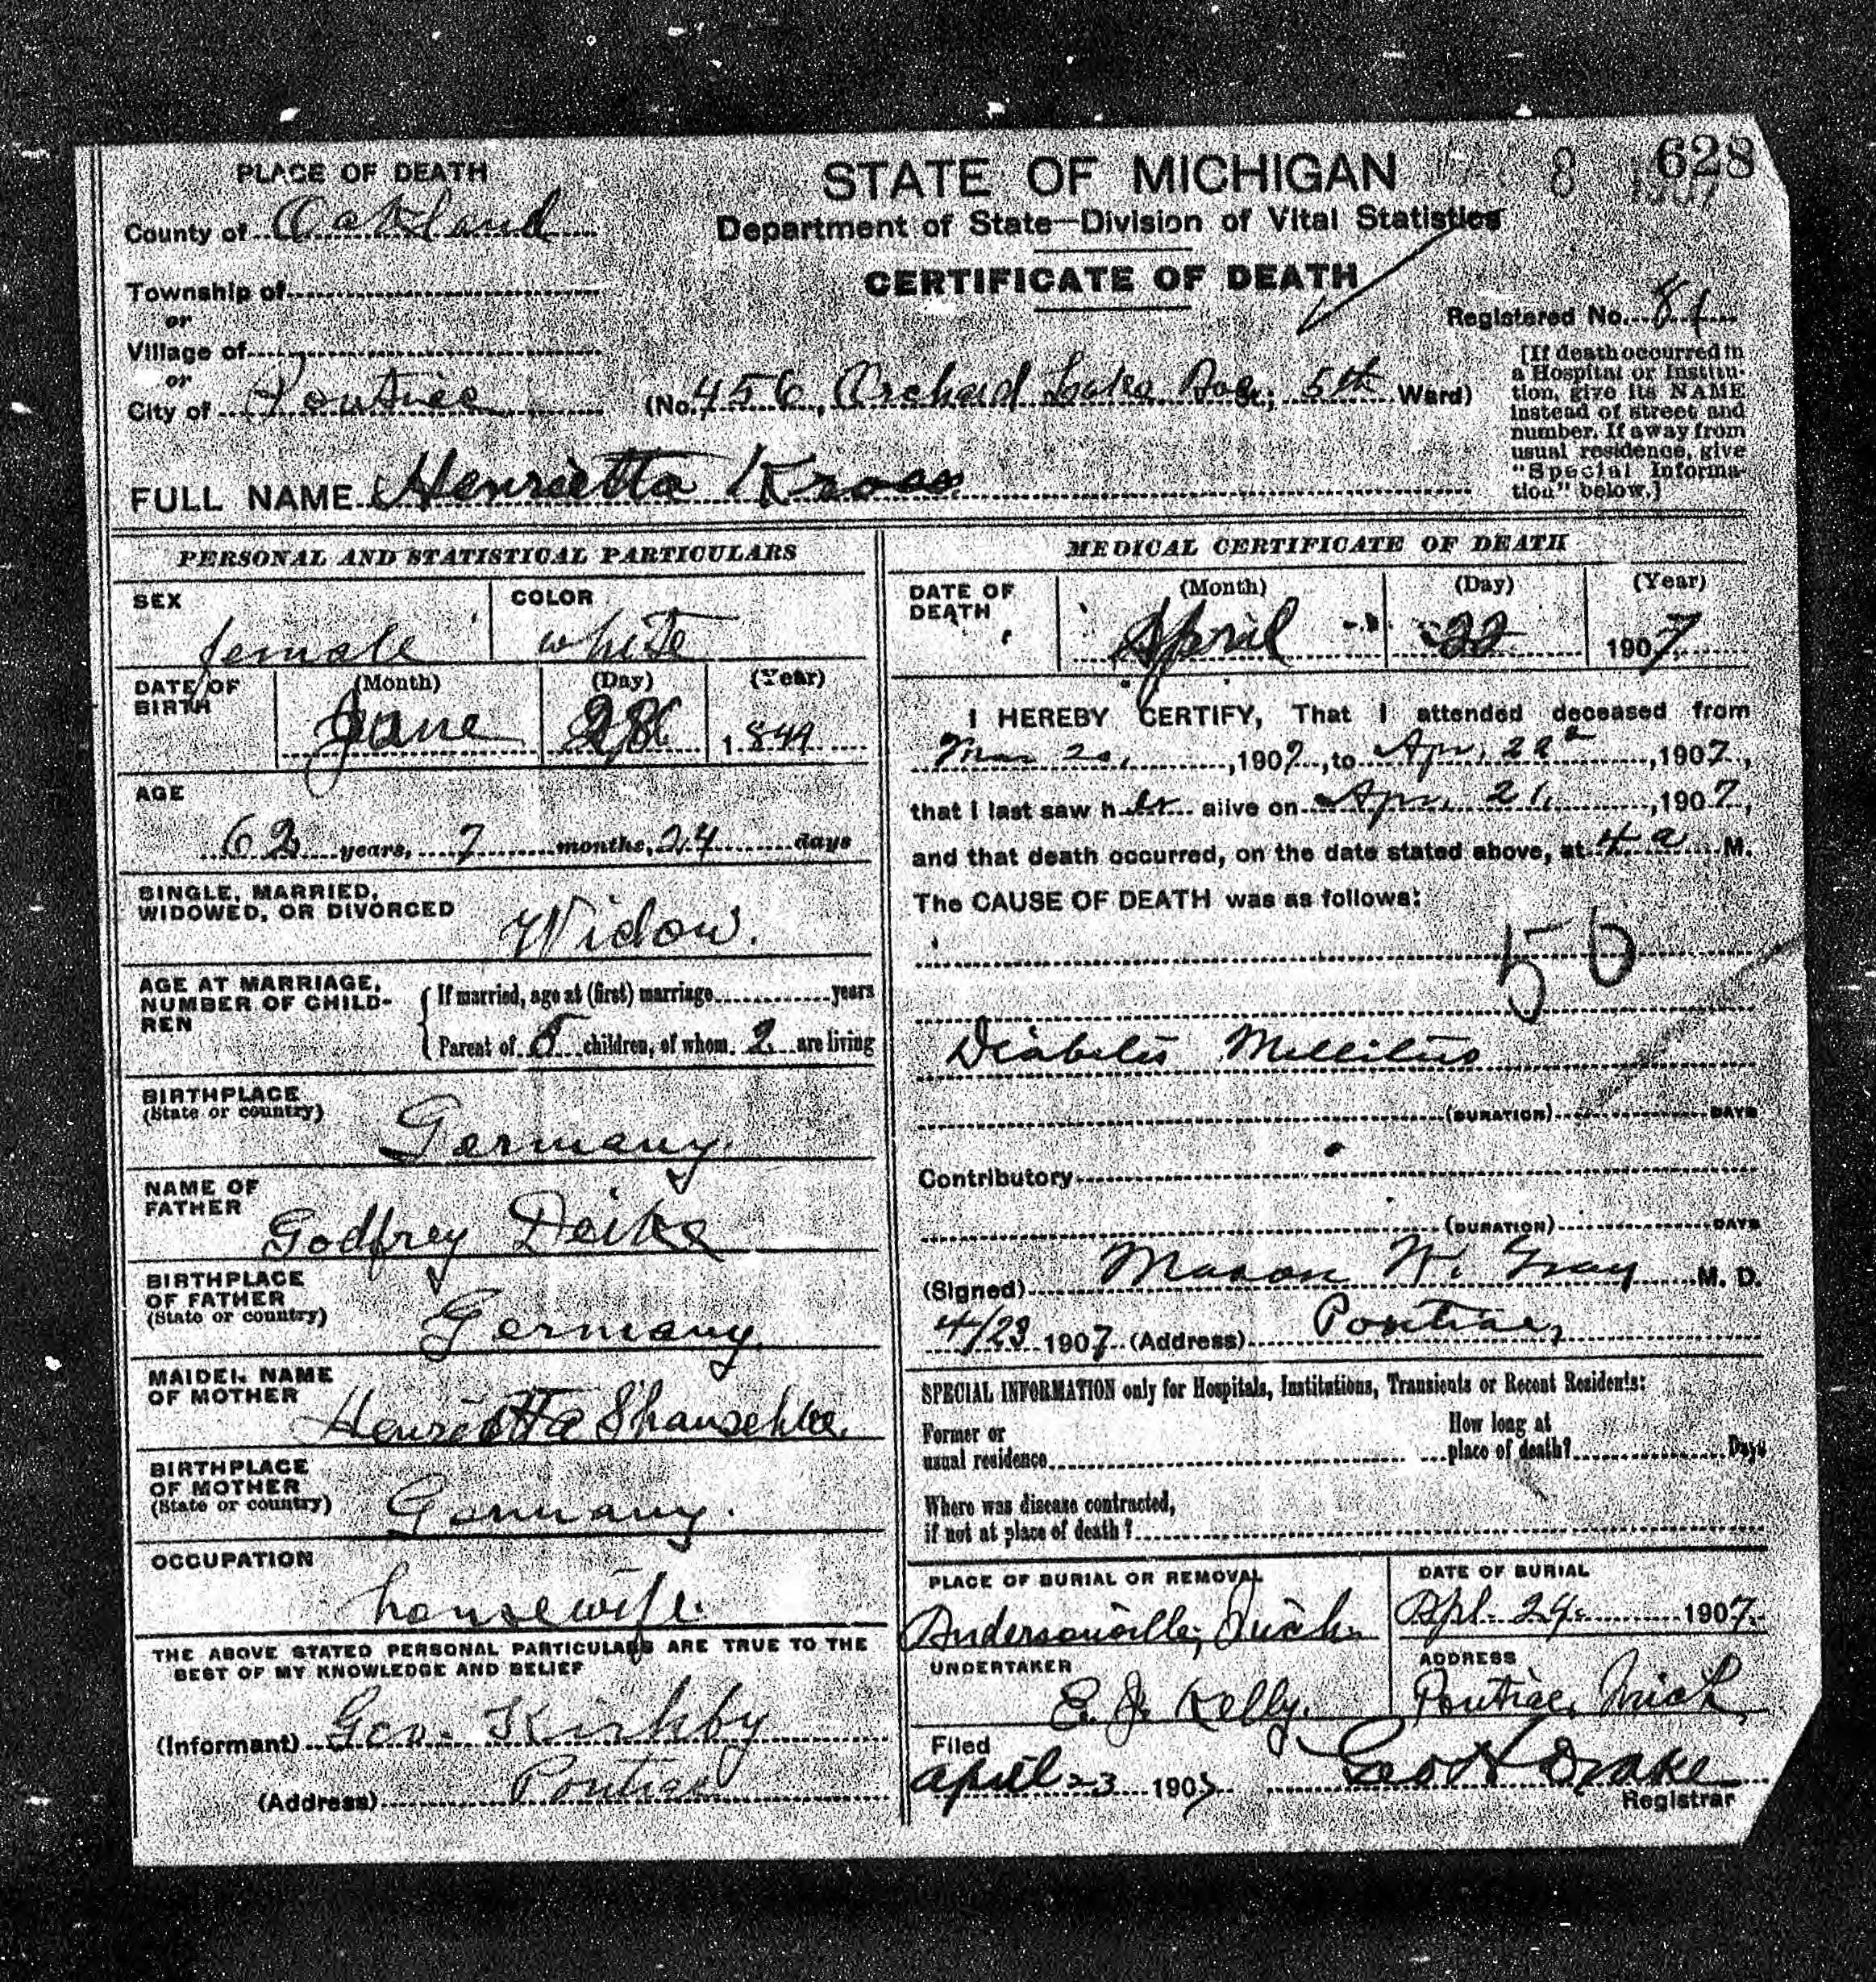 628
8 1907
PLACE OF DEATH
STATE OF MICHIGAN
County of Oakland
Department of State—Division of Vital Statistics
CERTIFICATE OF DEATH
Township of
or
Registered No. 81
Village of
or
City of Pontiac (No. 456 Orchard Lake Ave St.; 5th Ward)
[If death occurred in
a Hospital or Institu-
tion, give its NAME
instead of street and
number. If away from
usual residence, give
"Special Informa-
tion" below.]
FULL NAME Henrietta Kross
PERSONAL AND STATISTICAL PARTICULARS
SEX
female
COLOR
white
DATE OF BIRTH
(Month) (Day) (Year)
June 28 1844
AGE
62 years, 7 months, 24 days
SINGLE, MARRIED,
WIDOWED, OR DIVORCED
Widow.
AGE AT MARRIAGE,
NUMBER OF CHILD-
REN
If married, age at (first) marriage years
Parent of 5 children, of whom 2 are living
BIRTHPLACE
(State or country)
Germany.
NAME OF
FATHER
Godfrey Deike
BIRTHPLACE
OF FATHER
(State or country)
Germany.
MAIDEN NAME
OF MOTHER
Henrietta
BIRTHPLACE
OF MOTHER
(State or country)
Germany.
OCCUPATION
housewife.
THE ABOVE STATED PERSONAL PARTICULARS ARE TRUE TO THE
BEST OF MY KNOWLEDGE AND BELIEF
(Informant) Geo. Kirkby
(Address) Pontiac
MEDICAL CERTIFICATE OF DEATH
DATE OF
DEATH
(Month) (Day) (Year)
April 22 1907
I HEREBY CERTIFY, That I attended deceased from
Mar 20, 1907, to Apr. 22, 1907,
that I last saw her alive on Apr. 21, 1907,
and that death occurred, on the date stated above, at 4 a M.
The CAUSE OF DEATH was as follows:
50
Diabetes Mellitus
(DURATION) DAYS
Contributory
(DURATION) DAYS
(Signed) Mason W. Gray M. D.
4/23 1907 (Address) Pontiac,
SPECIAL INFORMATION only for Hospitals, Institutions, Transients or Recent Residents:
Former or
usual residence
How long at
place of death? Days
Where was disease contracted,
if not at place of death?
PLACE OF BURIAL OR REMOVAL
Andersonville, Mich.
DATE OF BURIAL
Apl. 24 1907.
UNDERTAKER
E. J. Kelly.
ADDRESS
Pontiac, Mich
Filed
April 23 1907
Geo H Drake
Registrar